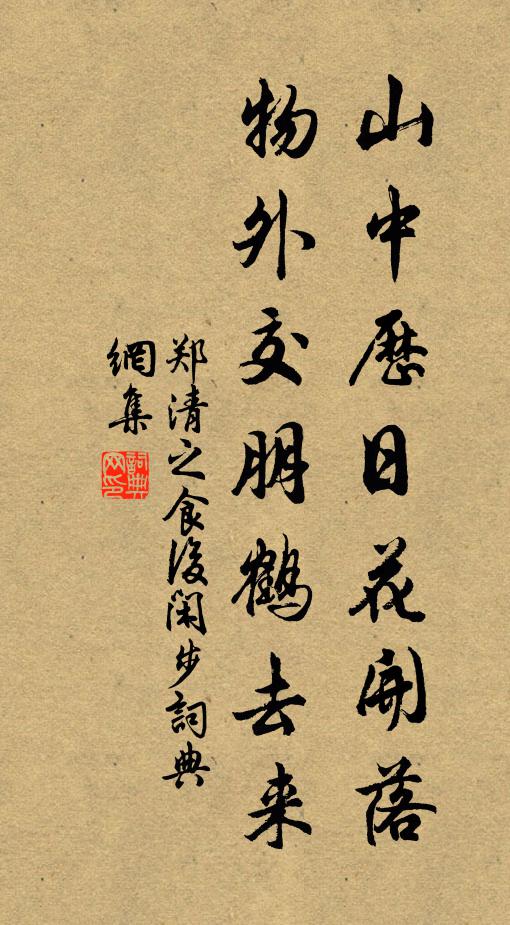 山中歷日花開落
物外交朋鶴去来
郑清之食後閑步詞典
網集
詞典
网印